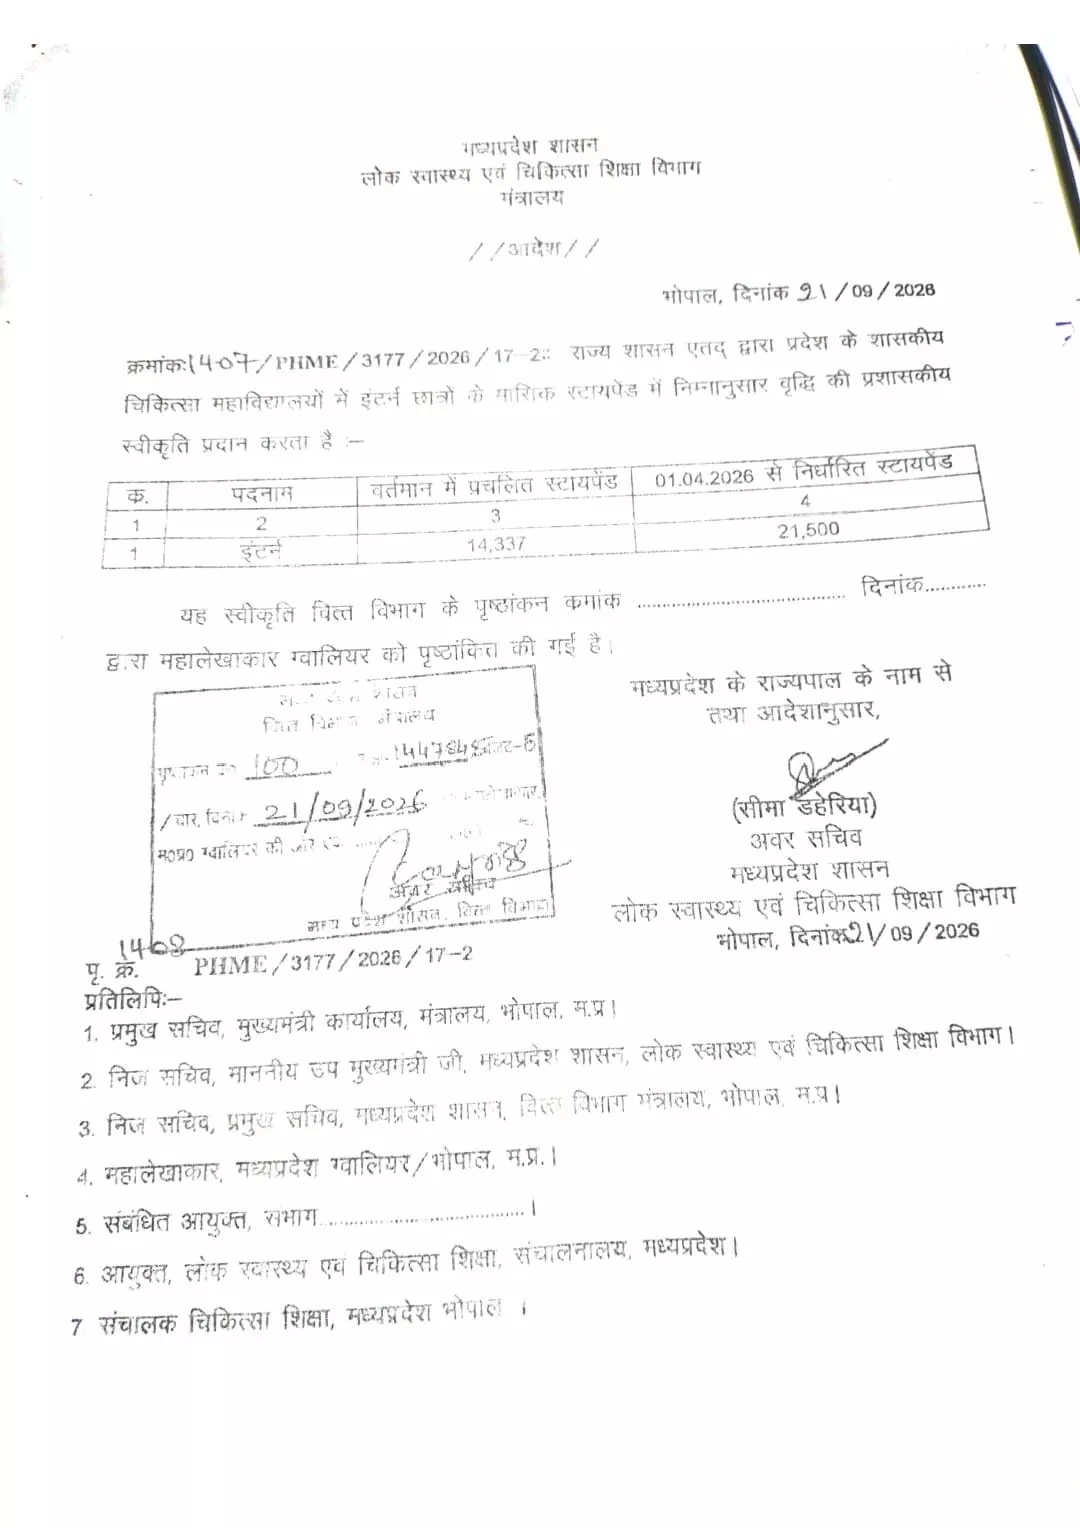 मध्यप्रदेश शासन
लोक स्वास्थ्य एवं चिकित्सा शिक्षा विभाग
मंत्रालय
//आदेश//
भोपाल, दिनांक 21/09/2026
क्रमांकः1407/PHME/3177/2026/17-2:: राज्य शासन एतद् द्वारा प्रदेश के शासकीय
चिकित्सा महाविद्यालयों में इंटर्न छात्रों के मासिक स्टायपेंड में निम्नानुसार वृद्धि की प्रशासकीय
स्वीकृति प्रदान करता है :–
क. पदनाम वर्तमान में प्रचलित स्टायपेंड 01.04.2026 से निर्धारित स्टायपेंड
1 2 3 4
1 इंटर्न 14,337 21,500
यह स्वीकृति वित्त विभाग के पृष्ठांकन कमांक ........................................ दिनांक............
द्वारा महालेखाकार ग्वालियर को पृष्ठांकित की गई है।
शासन
वित्त विभाग, मंत्रालय
पृष्ठांकन क्र. 100
/चार, दिनांक 21/09/2026
म०प्र० ग्वालियर की ओर
अवर सचिव
मध्य प्रदेश शासन, वित्त विभाग
मध्यप्रदेश के राज्यपाल के नाम से
तथा आदेशानुसार,
(सीमा डहेरिया)
अवर सचिव
मध्यप्रदेश शासन
लोक स्वास्थ्य एवं चिकित्सा शिक्षा विभाग
भोपाल, दिनांक 21/09/2026
पृ. क्र. 1408 PHME/3177/2026/17-2
प्रतिलिपिः–
1. प्रमुख सचिव, मुख्यमंत्री कार्यालय, मंत्रालय, भोपाल, म.प्र।
2. निज सचिव, माननीय उप मुख्यमंत्री जी, मध्यप्रदेश शासन, लोक स्वास्थ्य एवं चिकित्सा शिक्षा विभाग।
3. निज सचिव, प्रमुख सचिव, मध्यप्रदेश शासन, वित्त विभाग मंत्रालय, भोपाल, म.प्र।
4. महालेखाकार, मध्यप्रदेश ग्वालियर/भोपाल, म.प्र.।
5. संबंधित आयुक्त, संभाग.....................................।
6. आयुक्त, लोक स्वास्थ्य एवं चिकित्सा शिक्षा, संचालनालय, मध्यप्रदेश।
7 संचालक चिकित्सा शिक्षा, मध्यप्रदेश भोपाल ।